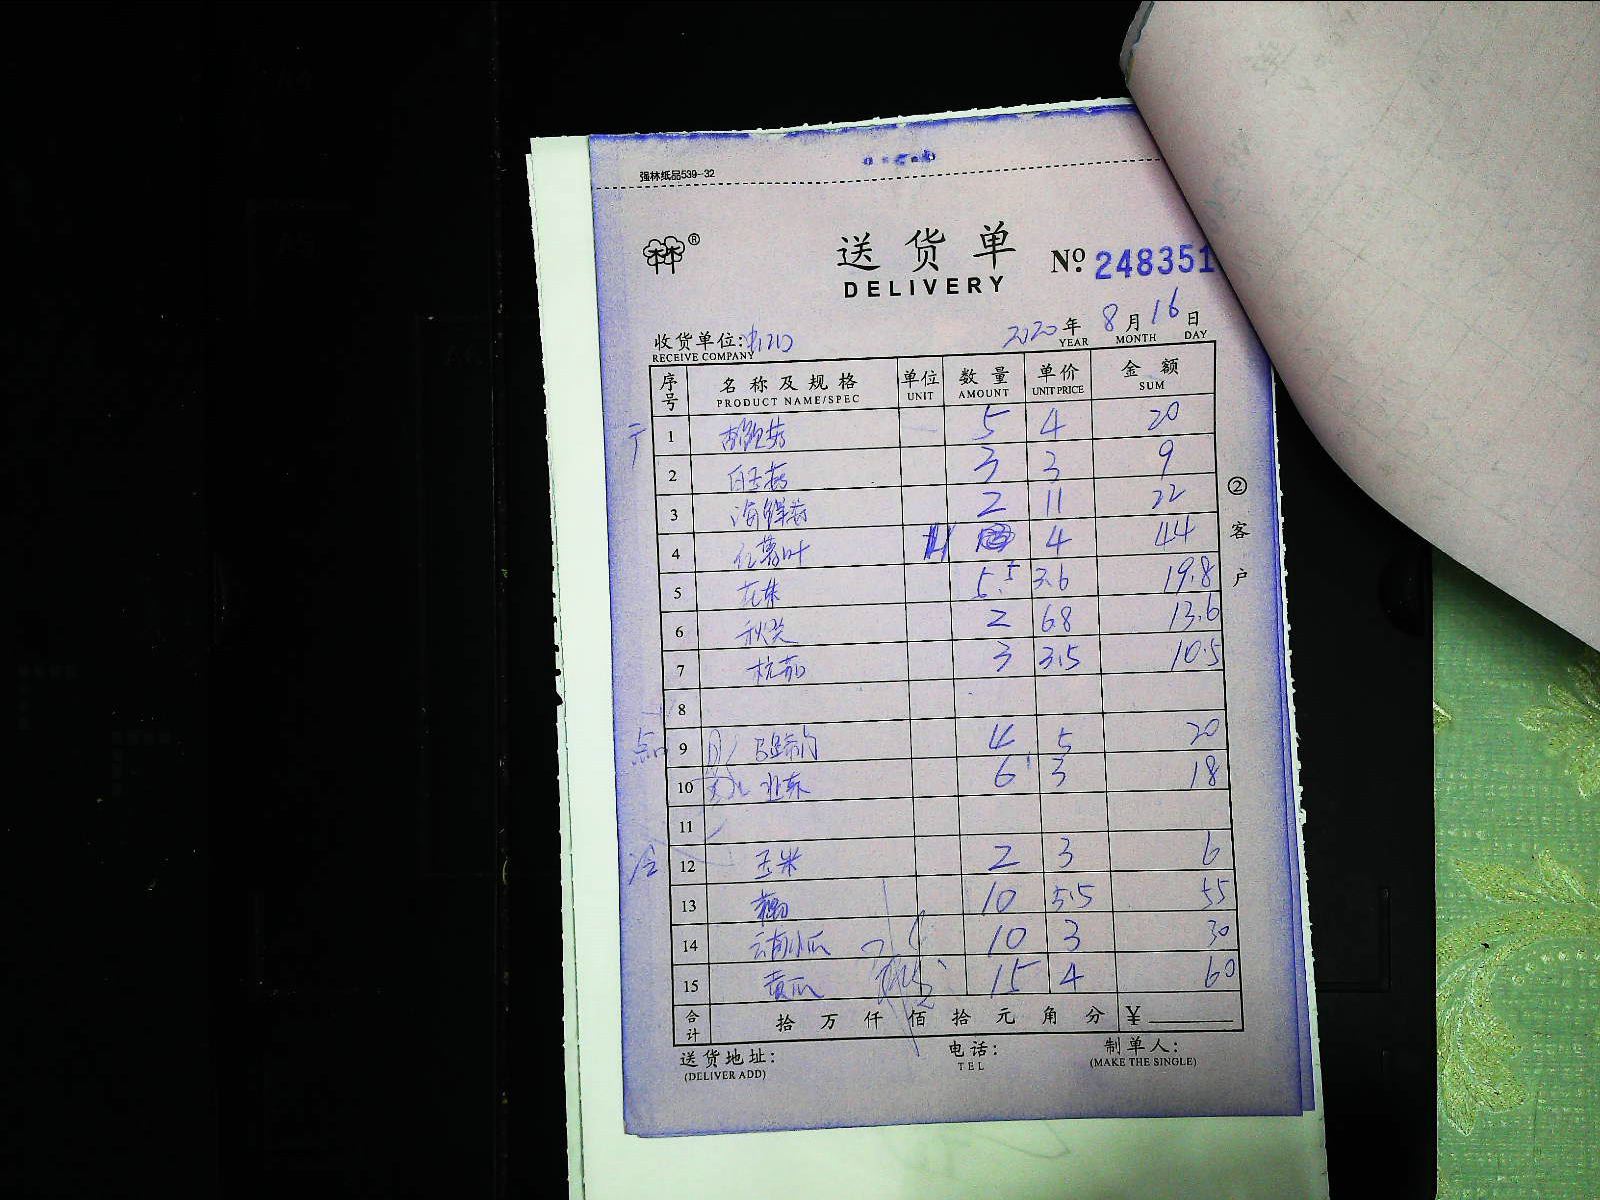 强林纸品539-32
送货单
DELIVERY
Nº 248351
收货单位:
RECEIVE COMPANY
2020年 8月 16日
YEAR MONTH DAY
序号 名称及规格 单位 数量 单价 金额
PRODUCT NAME/SPEC UNIT AMOUNT UNIT PRICE SUM
1 5 4 20
2 白玉菇 3 3 9
3 海鲜菇 2 11 22
4 红薯叶 11 4 44
5 5.5 3.6 19.8
6 秋葵 2 68 13.6
7 杭茄 3 3.5 10.5
8
点 9 4 5 20
10 6 3 18
11
冷 12 玉米 2 3 6
13 10 5.5 55
14 云南小瓜 10 3 30
15 黄瓜 15 4 60
合计 拾 万 仟 佰 拾 元 角 分 ¥
送货地址: 电话: 制单人:
(DELIVER ADD) TEL (MAKE THE SINGLE)
②客户